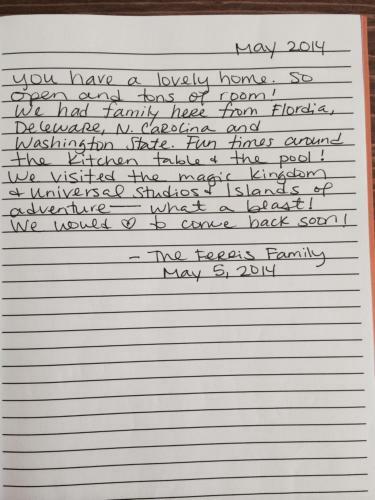 May 2014
you have a lovely home. So
open and tons of room!
We had family here from Flordia,
Deleware, N. Carolina and
Washington State. Fun times around
the kitchen table & the pool!
We visited the magic kingdom
& universal studios & Islands of
adventure — what a blast!
We would ♡ to come back soon!
- The Ferris Family
May 5, 2014